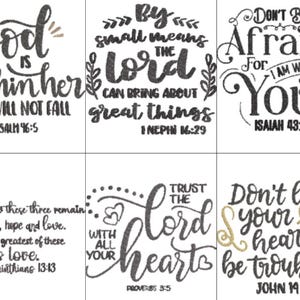 God
IS
within her
WILL NOT FALL
PSALM 46:5
By
small means
THE
Lord
CAN BRING ABOUT
great things
1 NEPHI 16:29
DON'T B
Afra
FOR
I AM W
You
ISAIAH 43:
these three remain
hope and love.
greatest of these
is love.
13:13
TRUST
THE
Lord
WITH
ALL
YOUR
heart
PROVERBS 3:5
Don't l
your
hear
be troub
JOHN 14